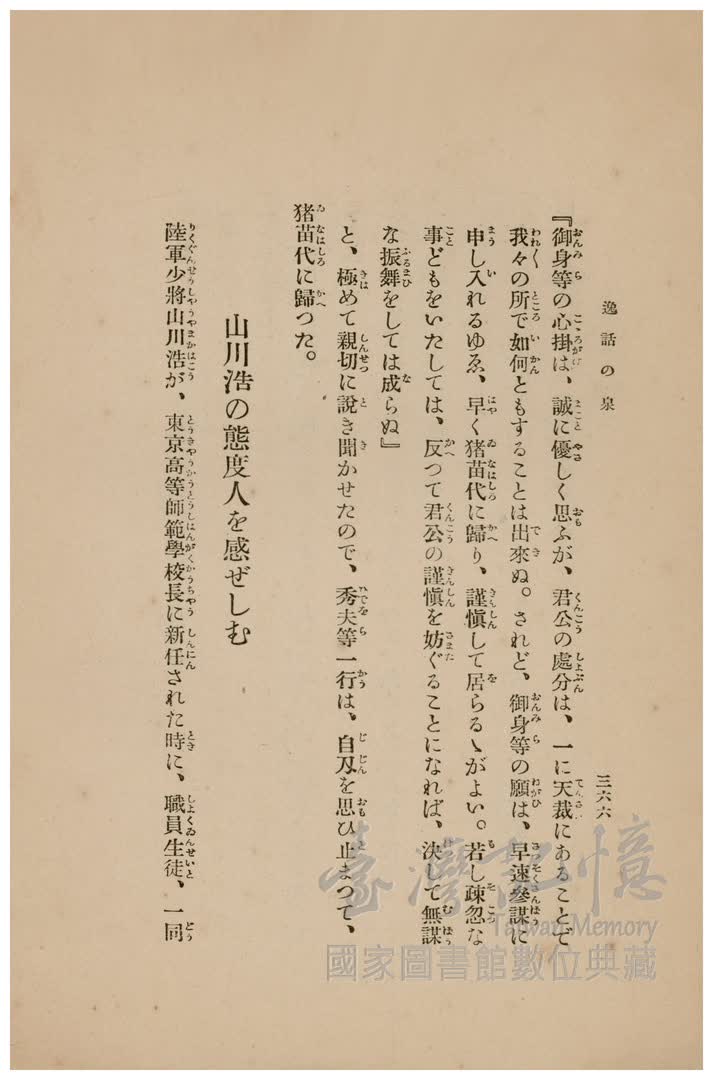 逸話の泉
三六六
『御身等の心掛は、誠に優しく思ふが、君公の處分は、一に天裁にあることで
我々の所で如何ともすることは出來ぬ。されど、御身等の願は、早速參謀に
申し入れるゆゑ、早く猪苗代に歸り、謹愼して居らるゝがよい。若し疎忽な
事どもをいたしては、反つて君公の謹愼を妨ぐることになれば、決して無謀
な振舞をしては成らぬ』
と、極めて親切に說き聞かせたので、秀夫等一行は、自刄を思ひ止まつて、
猪苗代に歸つた。
山川浩の態度人を感ぜしむ
陸軍少將山川浩が、東京高等師範學校長に新任された時に、職員生徒、一同
臺灣記憶
Taiwan Memory
國家圖書館數位典藏